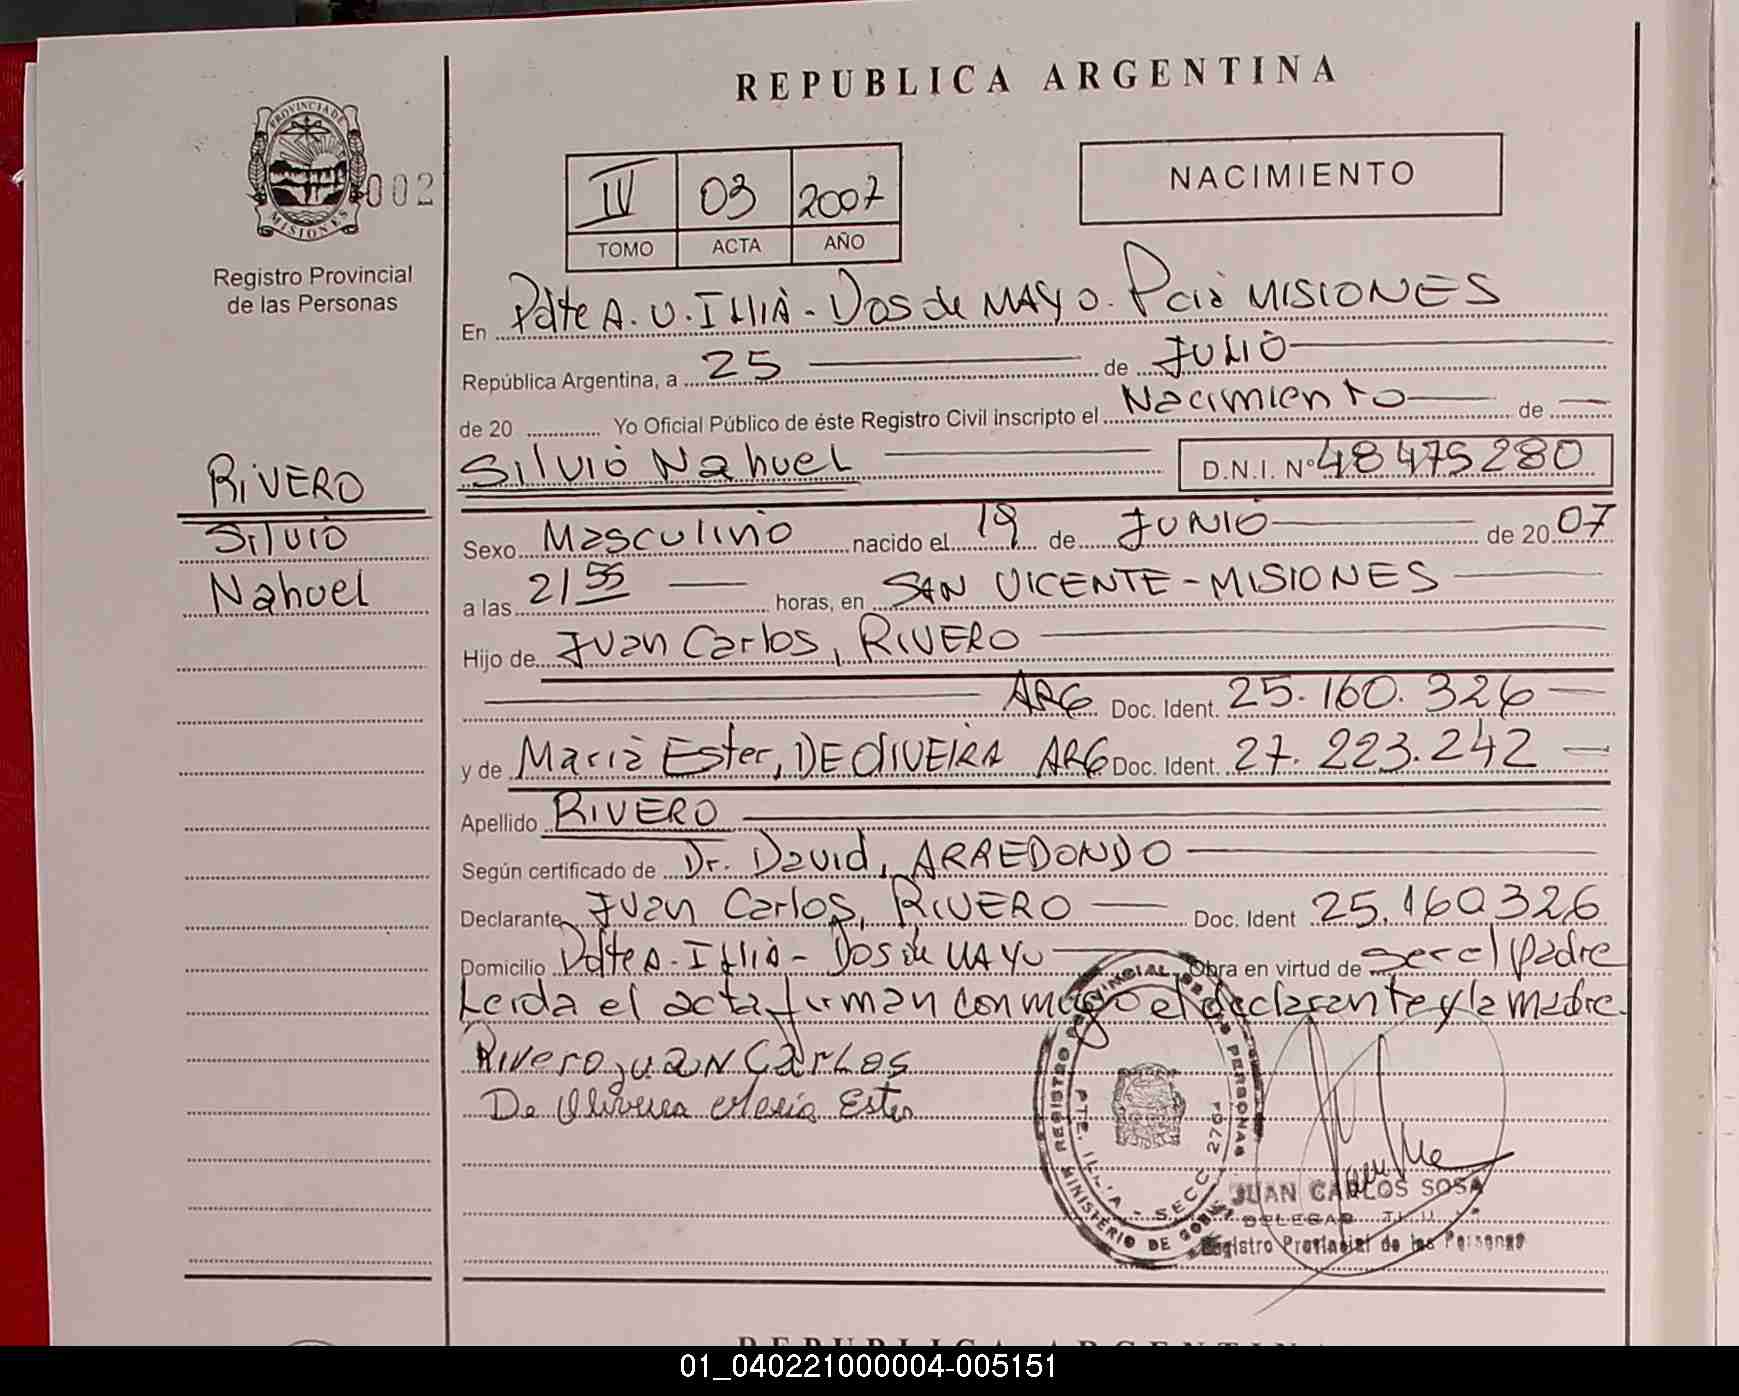 REPUBLICA ARGENTINA
PROVINCIA DE MISIONES
002
Registro Provincial
de las Personas
IV 03 2007
TOMO ACTA AÑO
NACIMIENTO
En Pdte A. U. ILLIA - Dos de MAYO. Pcia MISIONES
República Argentina, a 25 de JULIO
de 20 Yo Oficial Público de éste Registro Civil inscripto el Nacimiento de
Silvio Nahuel D.N.I. Nº 48475280
RIVERO
Silvio
Nahuel
Sexo Masculino nacido el 19 de JUNIO de 2007
a las 21 55 horas, en SAN VICENTE - MISIONES
Hijo de Juan Carlos, RIVERO
ARG Doc. Ident. 25.160.326
y de Maria Ester, DE OLIVEIRA ARG Doc. Ident. 27.223.242
Apellido RIVERO
Según certificado de Dr. David, ARREDONDO
Declarante Juan Carlos, RIVERO Doc. Ident 25.160326
Domicilio Pdte A. Illia - Dos de MAYO Obra en virtud de ser el padre
Leida el acta firman conmigo el declarante y la madre.
Rivero juan Carlos
De Oliveira Maria Ester
REGISTRO PROVINCIAL DE LAS PERSONAS
PTE. ILLIA - SECC. 2761
MINISTERIO DE GOBIERNO
JUAN CARLOS SOSA
Registro Provincial de las Personas
REPUBLICA ARGENTINA
01_040221000004-005151